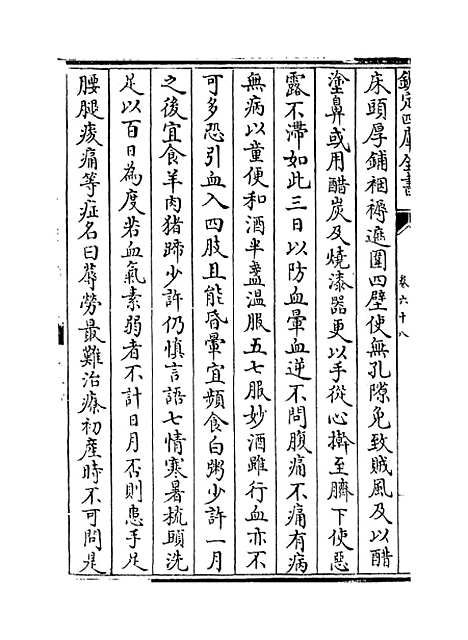 欽定四庫全書
卷六十八
床頭厚鋪裀褥遮圍四壁使無孔隙免致賊風及以醋
塗鼻或用醋炭及燒漆器更以手從心擀至臍下使惡
露不滯如此三日以防血暈血逆不問腹痛不痛有病
無病以童便和酒半盞温服五七服妙酒雖行血亦不
可多恐引血入四肢且能昏暈宜頻食白粥少許一月
之後宜食羊肉猪蹄少許仍慎言語七情寒暑梳頭洗
足以百日為度若血氣素弱者不計日月否則患手足
腰腿痠痛等症名曰蓐勞最難治療初産時不可問是